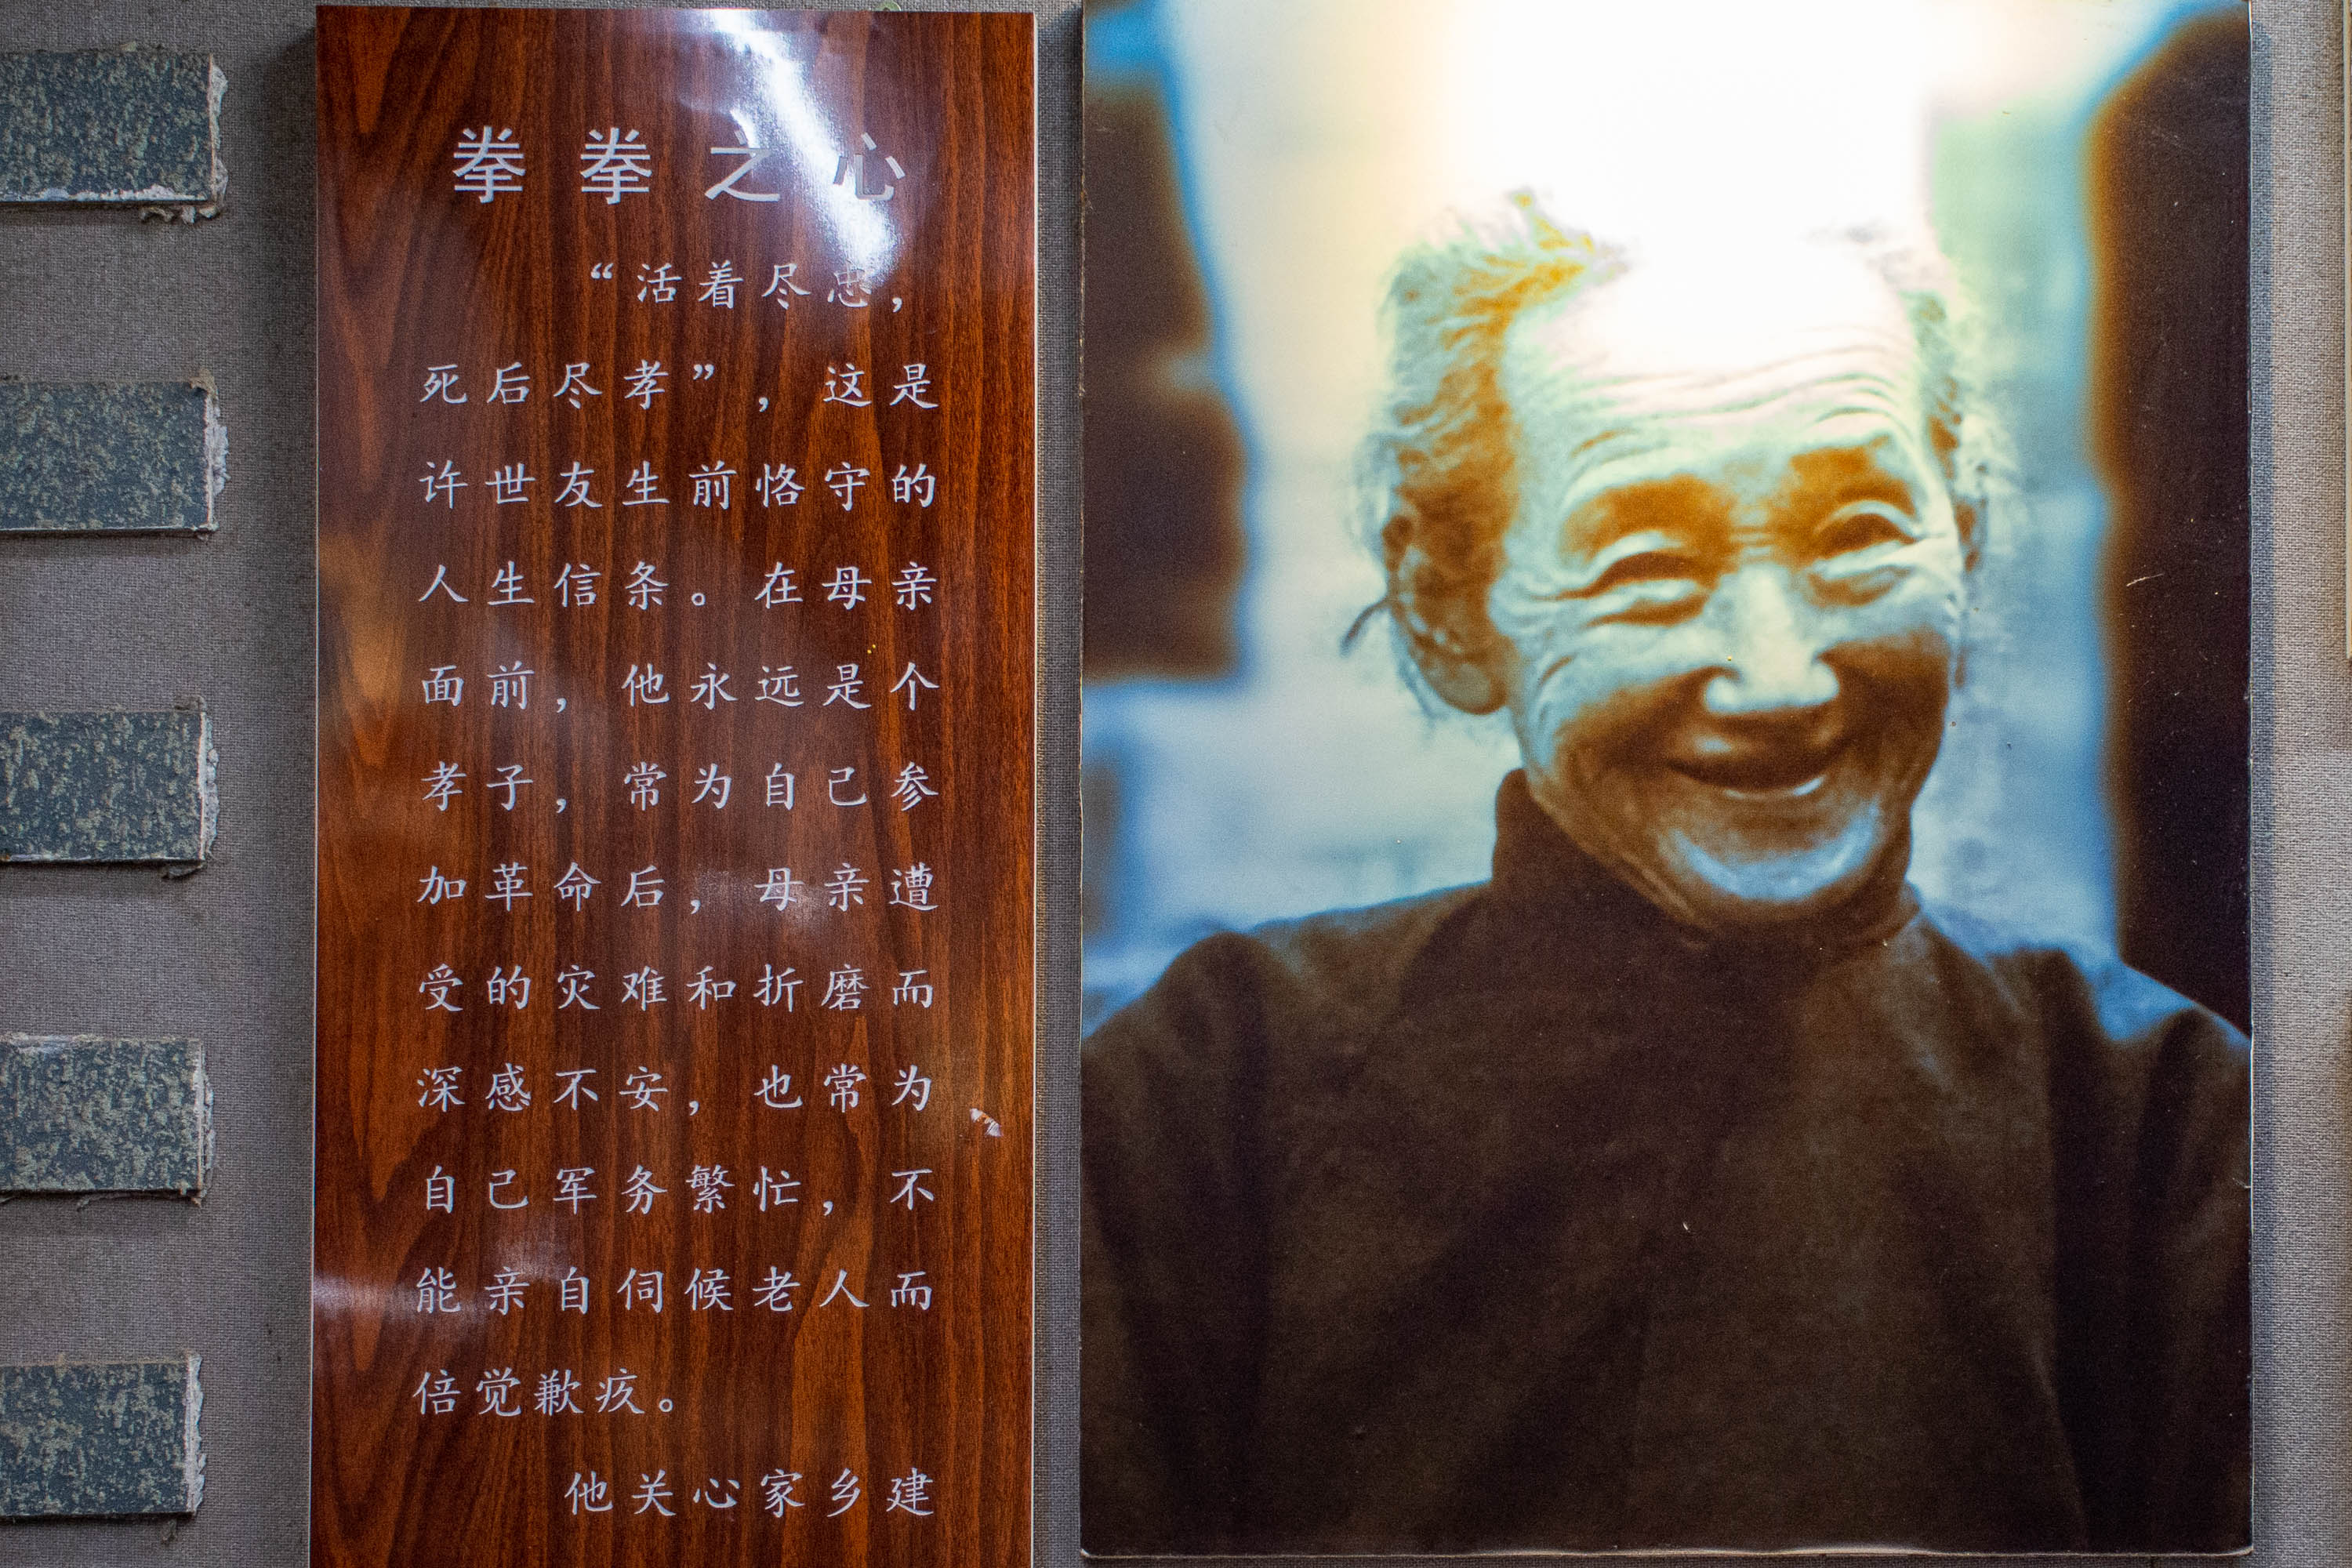 拳拳之心
“活着尽忠，
死后尽孝”，这是
许世友生前恪守的
人生信条。在母亲
面前，他永远是个
孝子，常为自己参
加革命后，母亲遭
受的灾难和折磨而
深感不安，也常为
自己军务繁忙，不
能亲自伺候老人而
倍觉歉疚。
他关心家乡建